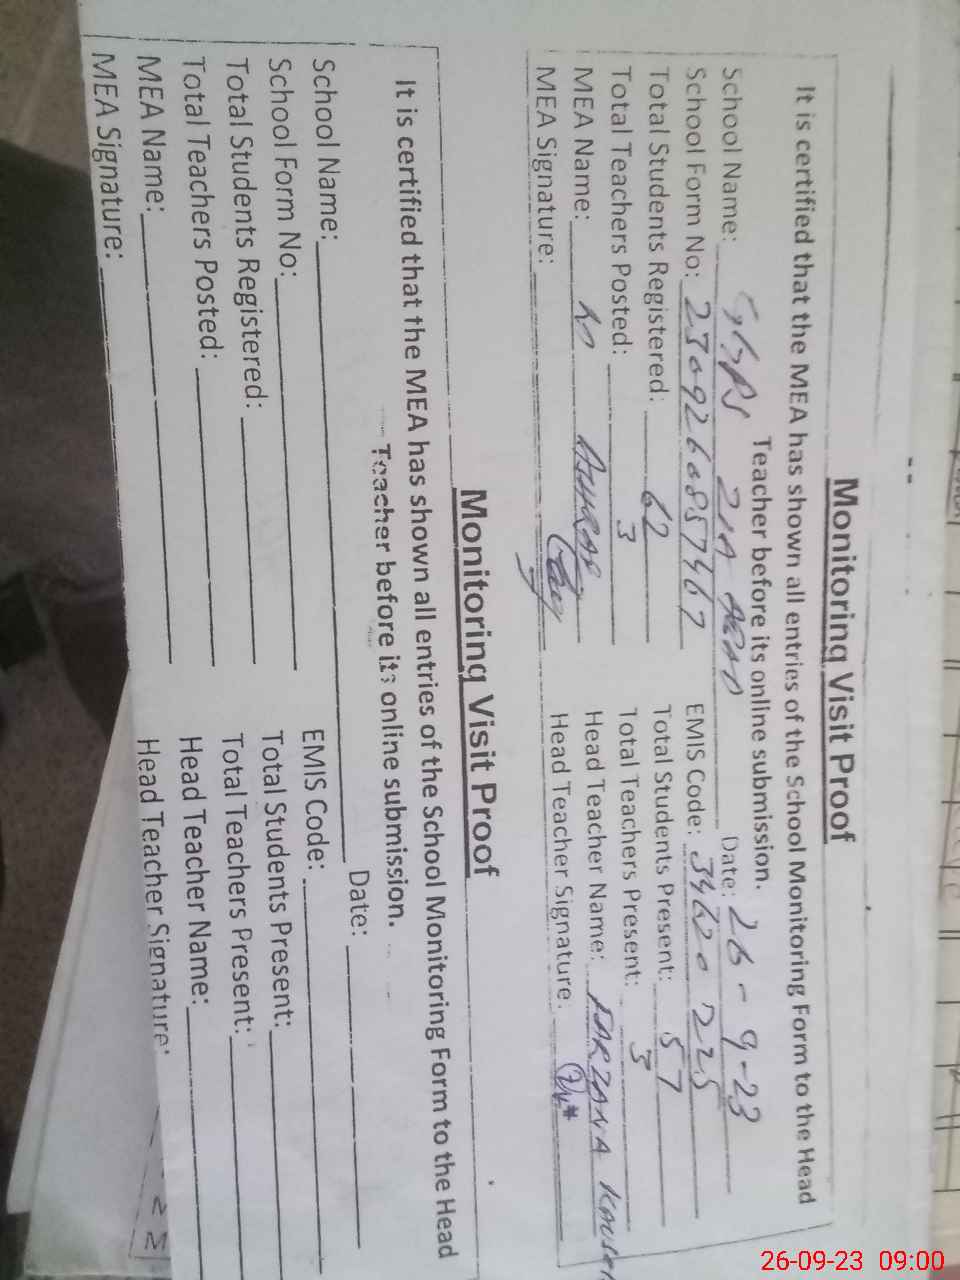 Monitoring Visit Proof
It is certified that the MEA has shown all entries of the School Monitoring Form to the Head
Teacher before its online submission.
School Name: GGPS ZIA ABAD Date: 26-9-23
School Form No: EMIS Code: 34620225
Total Students Registered: 62 Total Students Present: 57
Total Teachers Posted: 3 Total Teachers Present: 3
MEA Name: Head Teacher Name: FARZANA KOUSER
MEA Signature: Head Teacher Signature:
Monitoring Visit Proof
It is certified that the MEA has shown all entries of the School Monitoring Form to the Head
Teacher before its online submission.
School Name: Date:
School Form No: EMIS Code:
Total Students Registered: Total Students Present:
Total Teachers Posted: Total Teachers Present:
MEA Name: Head Teacher Name:
MEA Signature: Head Teacher Signature:
26-09-23 09:00